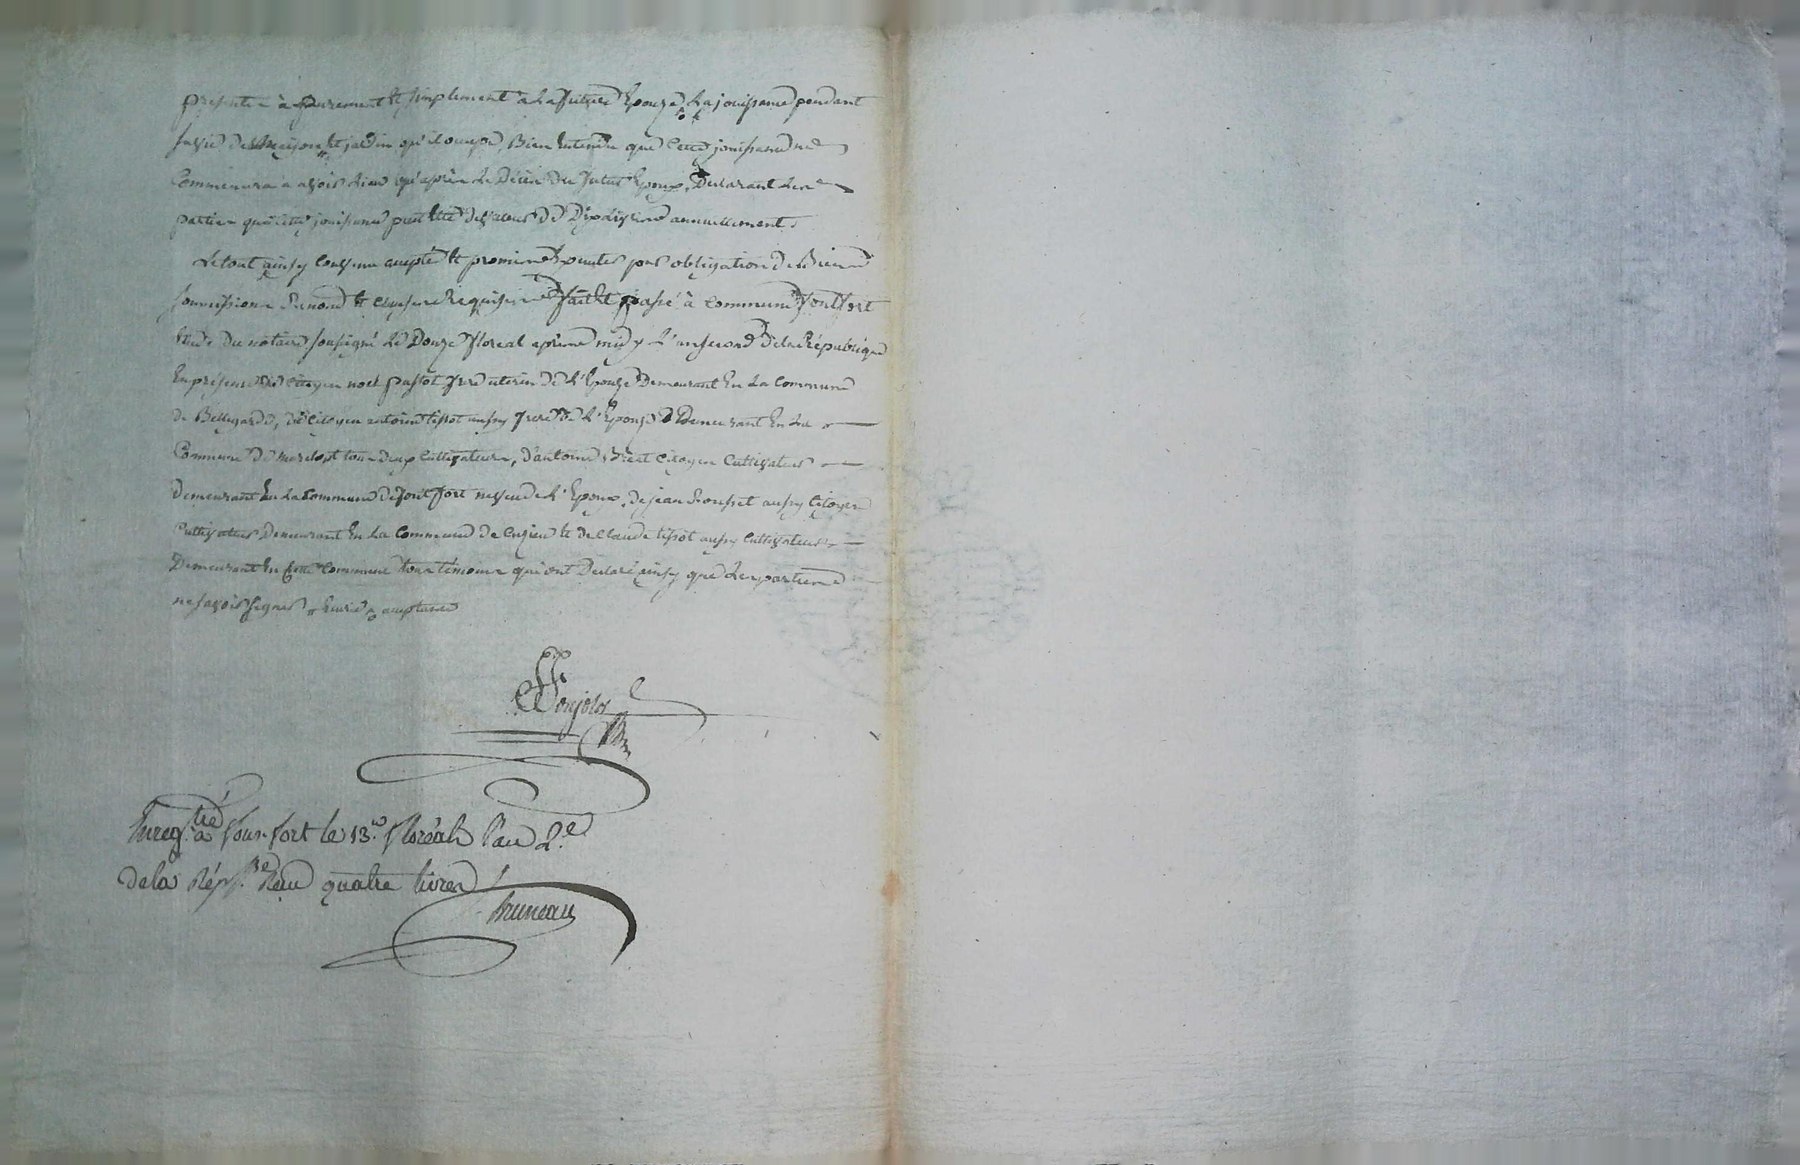 presente a purement et simplement a la future Epouze la jouissance pendant
sa vie des maison et jardin qu'il occupe, Bien Entendu que cette jouissance ne
Commencera a avoir lieu qu'après le Décès du futur Epoux, Declarant les
parties que cette jouissance peut être de valeur de Dix livres annuellement.
Le tout ainsy convenu accepté et promis par obligation de Biens
soumissions Renond et clauses Requises fait et passé à Commune Fontfort
Etude du notaire soussigné le Douze floreal après midy L'an second de la République
En présence du citoyen noel pastot frere uterin de l'Epouze Demeurant En la Commune
de Bellegarde, du Citoyen antoine tissot aussy frere de l'Epouze Demeurant En la
Commune de tous deux Cultivateurs, d'antoine Citoyen Cultivateur
Demeurant En la Commune de fontfort neveu de l'Epoux, de jean aussy Citoyen
Cultivateur Demeurant En la Commune de Cuzieu et de Claude tissot aussy Cultivateur
Demeurant En cette Commune tous témoins qui ont Declaré ainsy que les parties
ne savoir signer acceptance
Ponjolos
Enreg.tré a Fonfort le 13.e floréal l'an 2.e
de la Rép. Reçu quatre livres
Bruneau